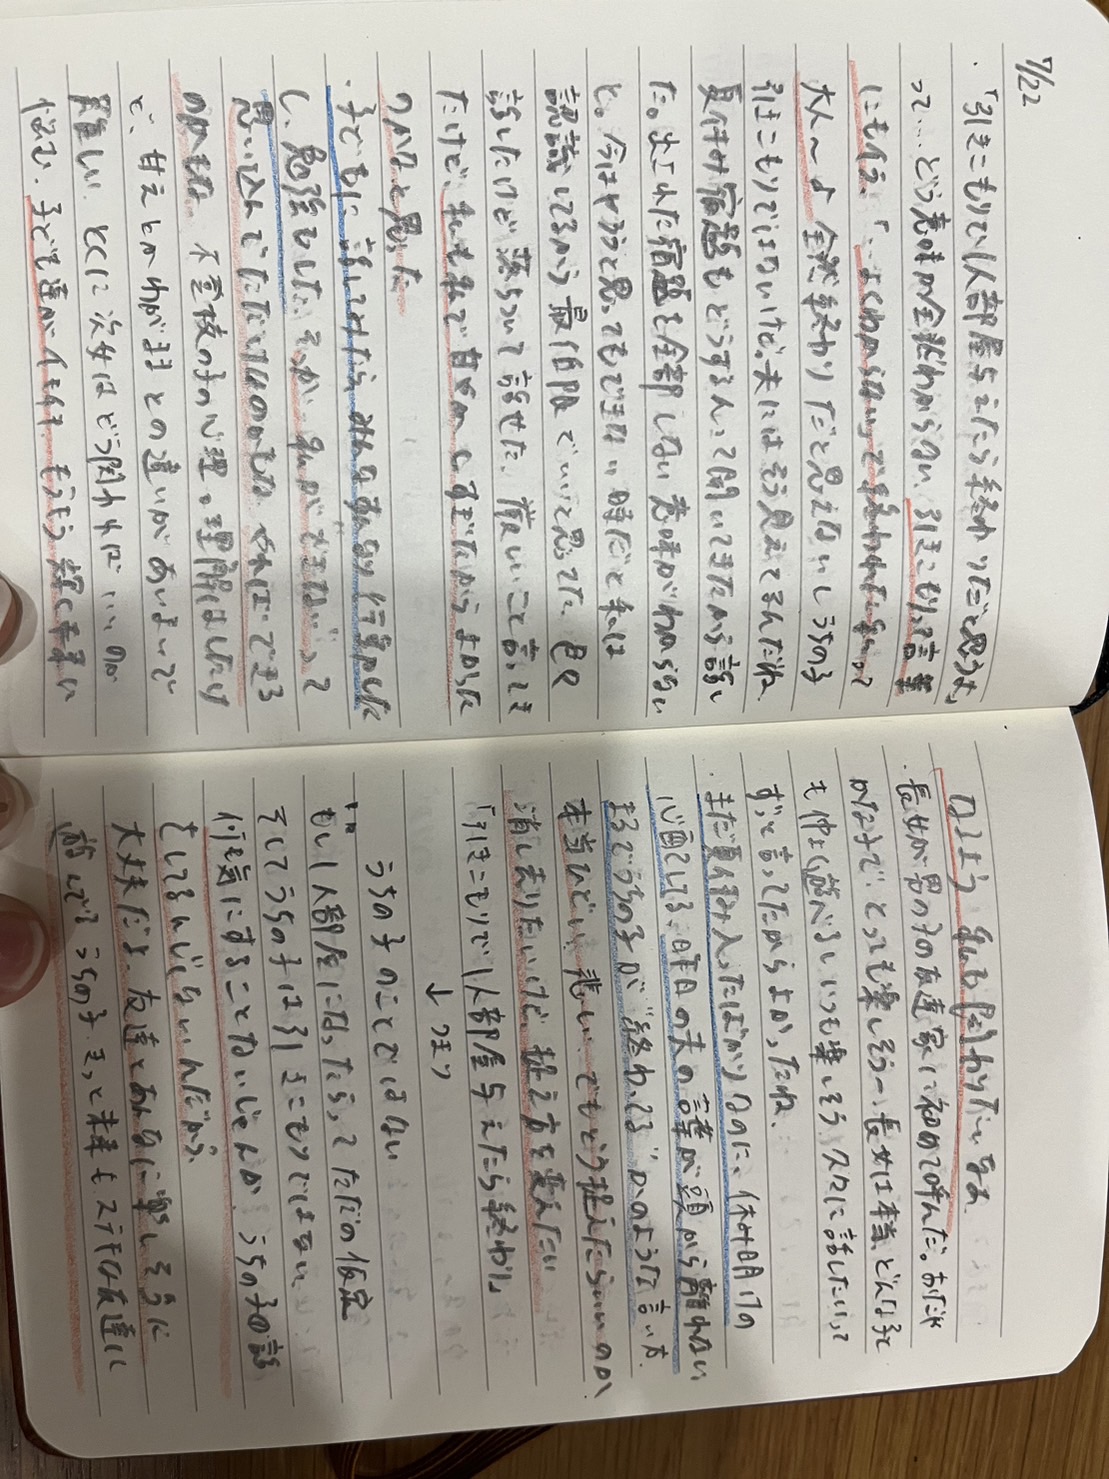 7/22
・「引きこもりで1人部屋与えたら終わりだと思うよ」
って…どう意味か全然わからない、引きこもりって言葉
にもイラ、「…よくわからない」で終わればよかったって
大人〜よ 全然終わりだと思えないしうちの子
引きこもりではないけど、夫にはそう見えてるんだね、
夏休み宿題もどうするんって聞いてきたから話し
た。出された宿題を全部しない意味がわからない
と。今はやろうと思ってもできない時だと私は
認識してるから最低限でいいと思ってた、色々
話したけど落ちついて話せた、厳しいこと言ってき
たけど、私も私で甘やかしすぎだからよかった
のかなと思った
・子どもに話してみたら みんなすんなり行動した
し、勉強もした、そっか 私ができないって
思い込んでただけなのかもな やればできる
のかもな 不登校の子の心理の理解はしたけ
ど、甘えとかわがままとの違いがあいまいで
難しい とくに次女はどう関われば…、のか
悩む、子ども達がイキイキ もうもう輝く未来に
なるよう 私も関わりたいなあ
・長女が男の子の友達家に初めて呼んだ。おだや
かな子で、とっても楽しそう〜、長女は本当どんな子と
も仲よく遊べるしいつも楽しそう 久々に話したいって
ずっと言ってたからよかったね、
・まだ夏休み入ったばかりなのに、休み明けの
心配してる、昨日の夫の言葉が頭から離れない
まるでうちの子が“終わってる”かのような言い方、
本当ひどい、悲しい、でもどう捉えたらいいのか
消し去りたいけど、捉え方を変えたい
「引きこもりで1人部屋与えたら終わり」
↓ つまり
うちの子のことではない
もし1人部屋になったら、ってただの仮定
そしてうちの子は引きこもりではない、
何も気にすることないじゃんか うちの子の話
をしてるんじゃないんだから、
大丈夫だよ、友達とあんなに楽しそうに
遊んでる うちの子 きっと未来もステキな友達に